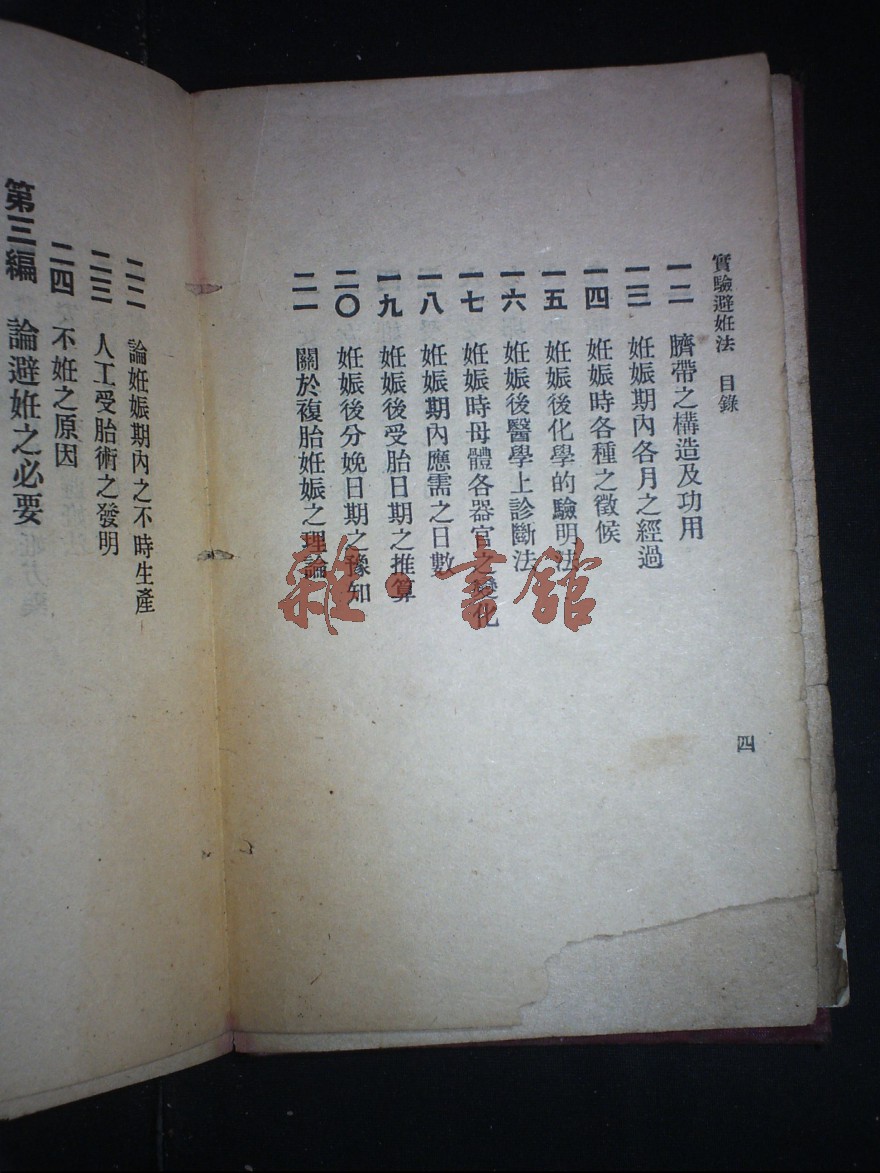 實驗避妊法 目錄
一二 臍帶之構造及功用
一三 妊娠期內各月之經過
一四 妊娠時各種之徵候
一五 妊娠後化學的驗明法
一六 妊娠後醫學上診斷法
一七 妊娠時母體各器官之變化
一八 妊娠期內應需之日數
一九 妊娠後受胎日期之推算
二〇 妊娠後分娩日期之豫知
二一 關於複胎妊娠之理論
四
二二 論妊娠期內之不時生產
二三 人工受胎術之發明
二四 不妊之原因
第三編 論避妊之必要
雜·書館